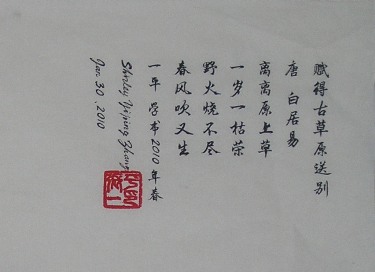 赋得古草原送别
唐 白居易
离离原上草
一岁一枯荣
野火烧不尽
春风吹又生
一年 学书 2010 年春
Shirley Yijing Zhang
Jan 30. 2010